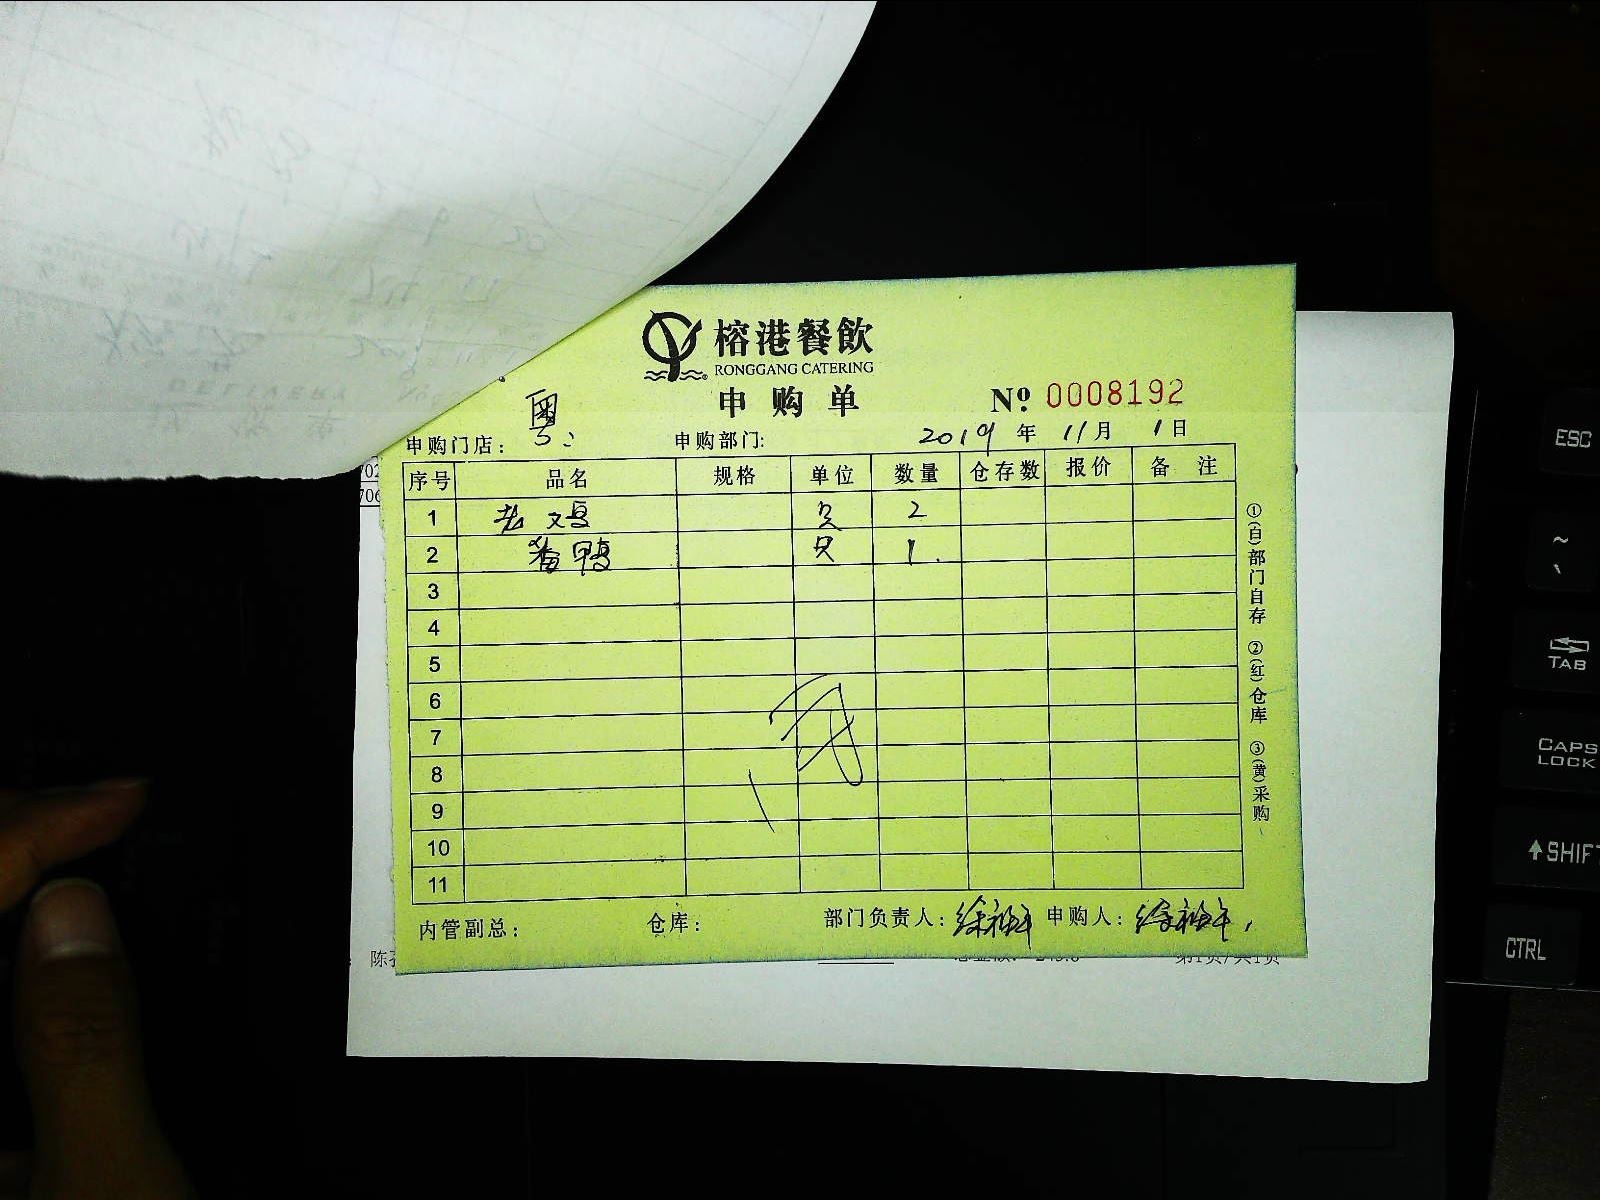 榕港餐飲
RONGGANG CATERING
申购单
№ 0008192
申购门店： 粤 申购部门: 2019 年 11 月 1 日
序号 品名 规格 单位 数量 仓存数 报价 备 注
1 老鸡 只 2
2 番鸭 只 1
3
4
5
6
7
8
9
10
11
①(白)部门自存 ②(红)仓库 ③(黄)采购
内管副总： 仓库： 部门负责人： 申购人：
第1页/共1页
ESC
~
TAB
CAPS LOCK
SHIFT
CTRL